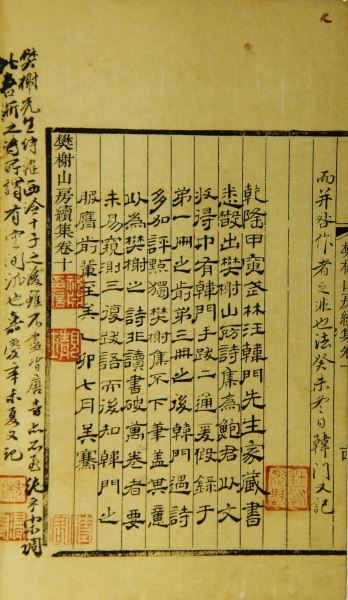 而并咎作者之非也法癸未冬日韓門又記
乾隆甲寅武林汪韓門先生家藏書
悉散出樊榭山房詩集為鮑君以文
收得中有韓門手跋二通爰假錄于
第一冊之前第三冊之後韓門過詩
多加評點獨樊榭集不下筆蓋其意
以為樊榭之詩非讀書破萬卷者要
未易窺測三復跋語而後知韓門之
服膺前輩至矣乙卯七月吳騫
樊榭山房續集卷十
樊榭先生詩 西泠十子之後雖不盡皆唐音亦不至 宋調
此吾浙之詩所謂有雲間派也嘉慶辛未夏又記